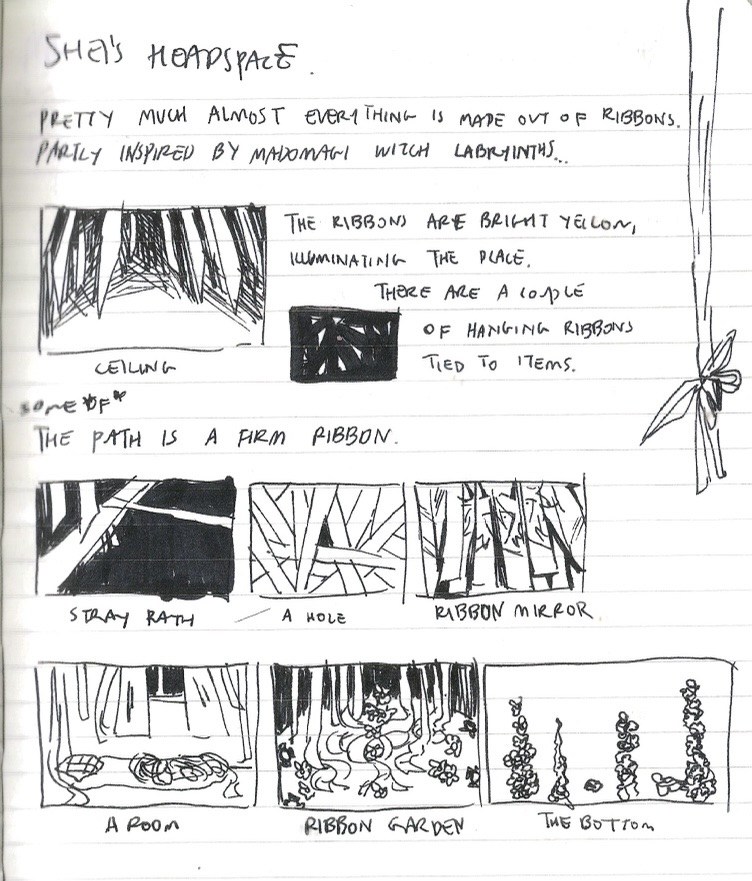 SHEI'S HEADSPACE.
PRETTY MUCH ALMOST EVERYTHING IS MADE OUT OF RIBBONS.
PARTLY INSPIRED BY MADOMAGI WITCH LABRYINTHS...
THE RIBBONS ARE BRIGHT YELLOW,
ILLUMINATING THE PLACE.
THERE ARE A COUPLE
OF HANGING RIBBONS
TIED TO ITEMS.
CEILING
SOME *OF*
THE PATH IS A FIRM RIBBON.
STRAY PATH
A HOLE
RIBBON MIRROR
A ROOM
RIBBON GARDEN
THE BOTTOM